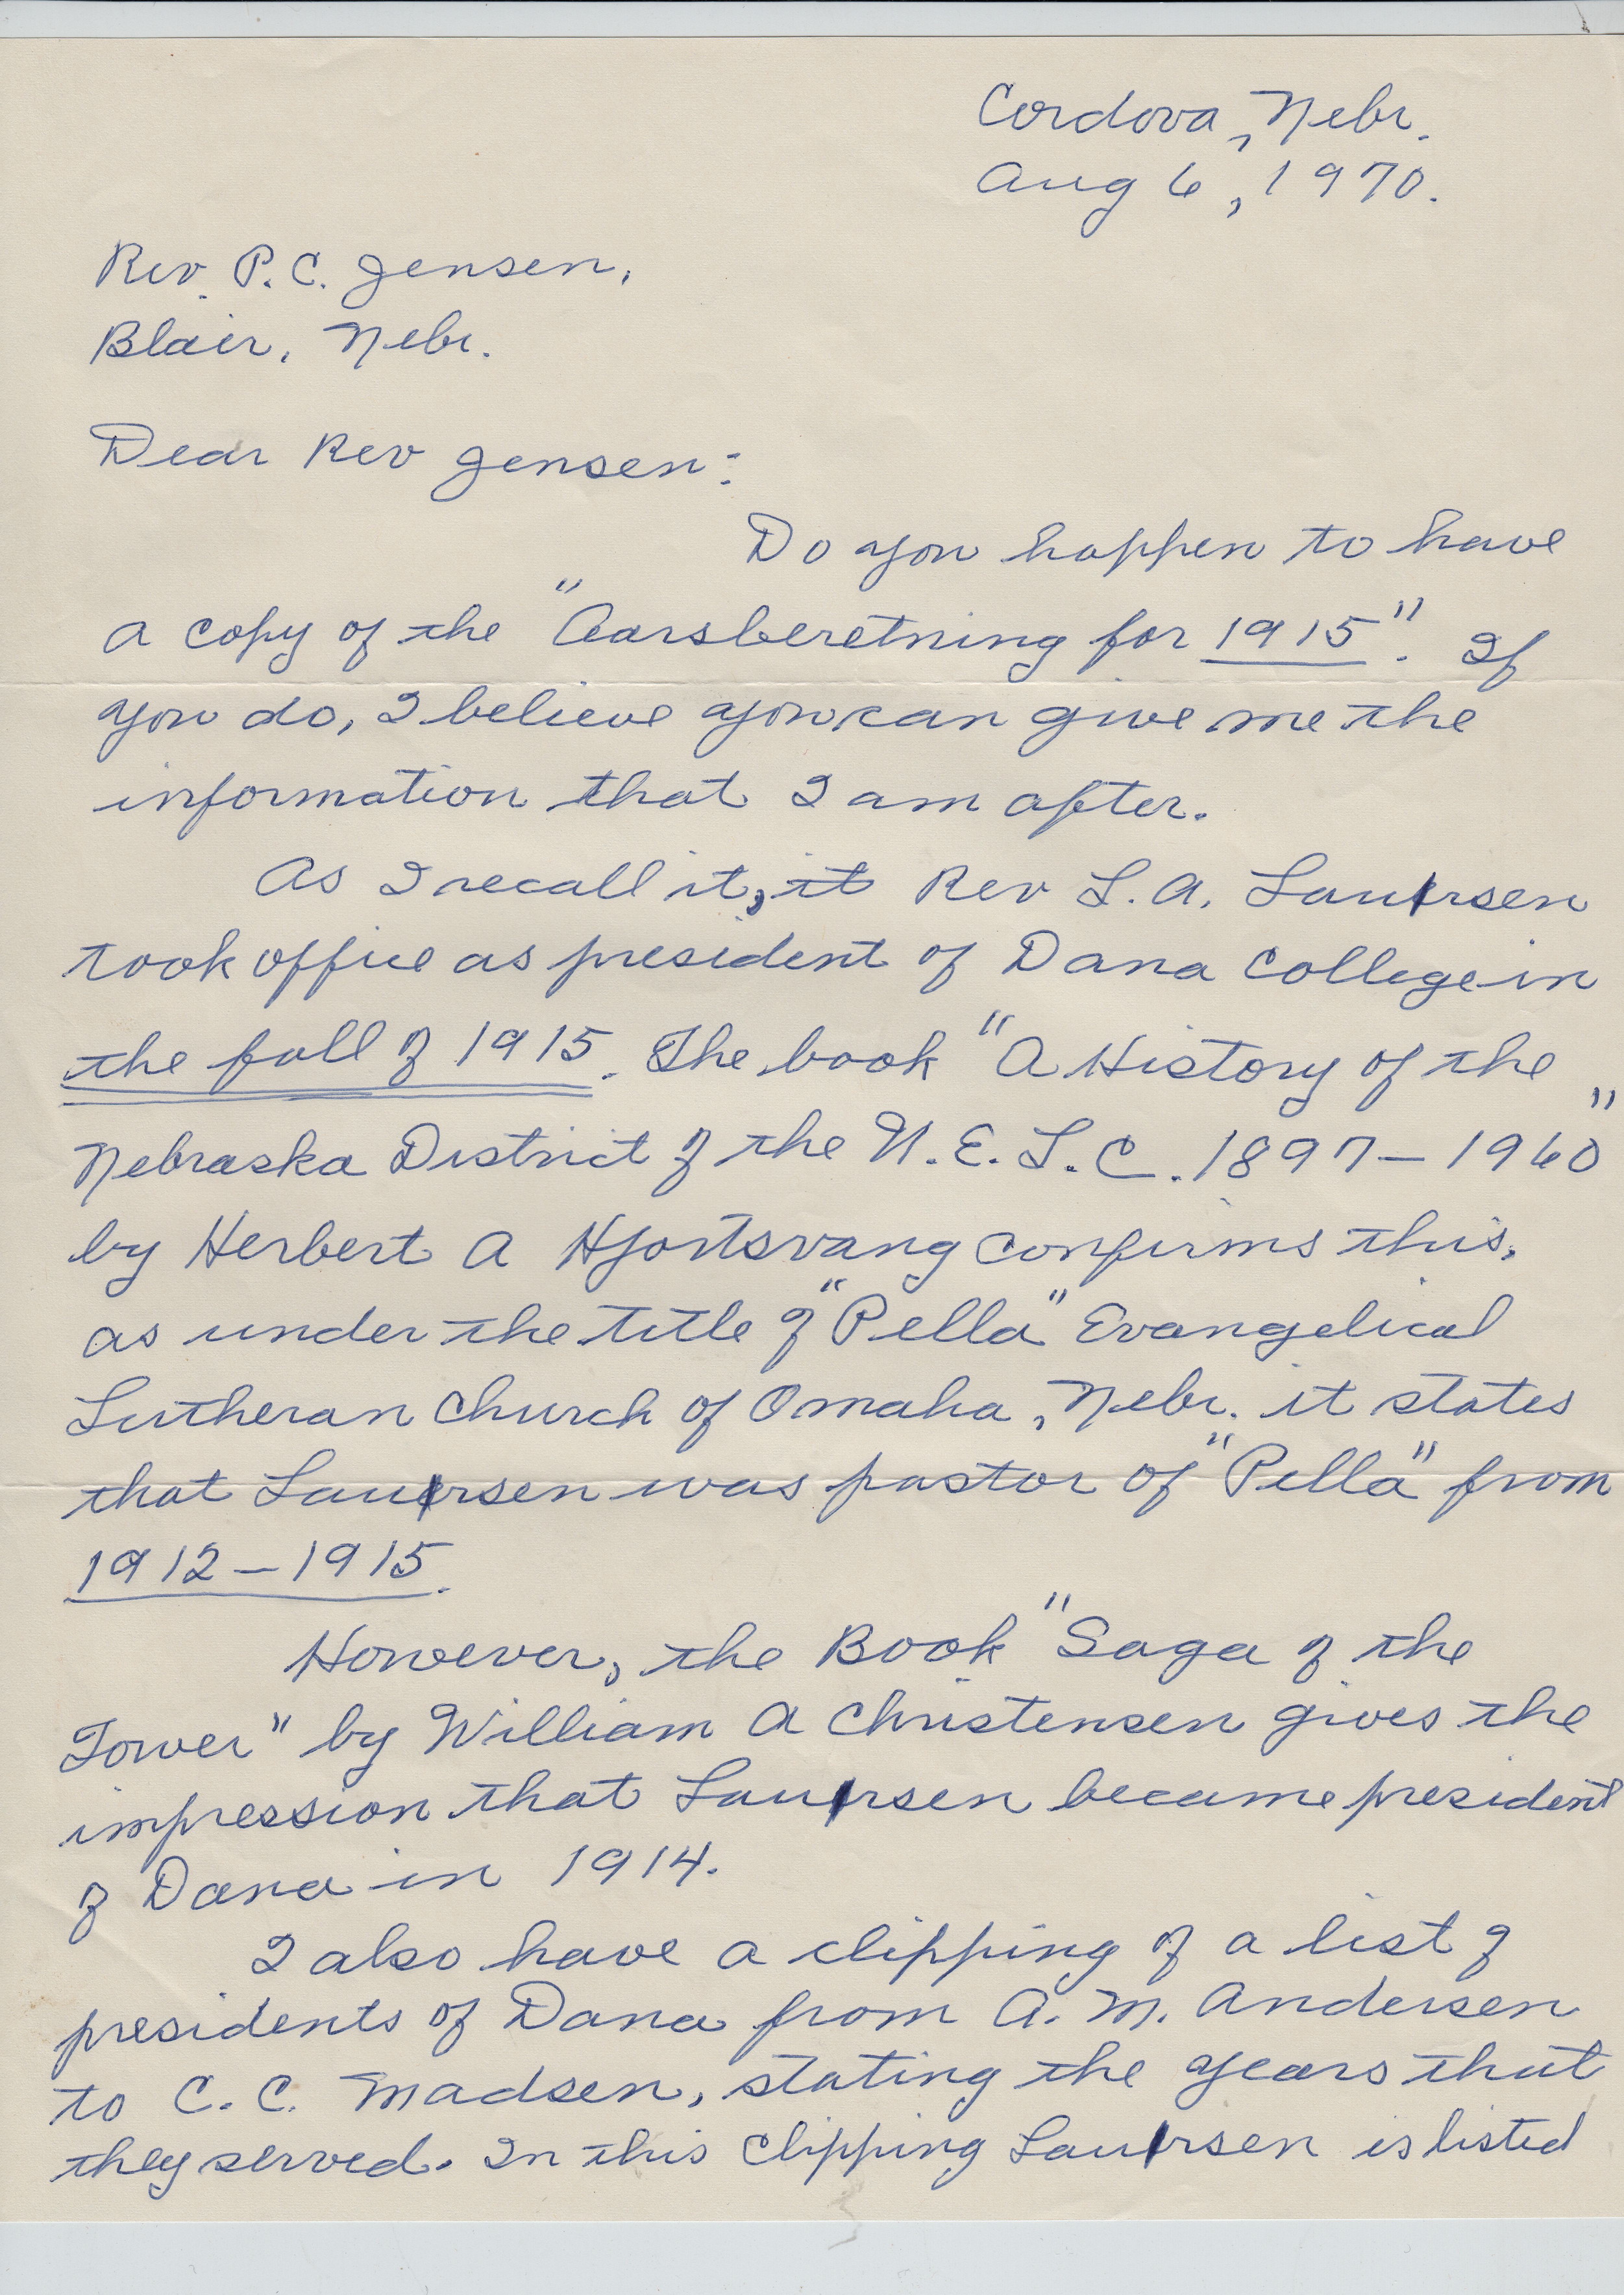 Cordova, Nebr.
Aug 6, 1970.
Rev. P.C. Jensen,
Blair, Nebr.
Dear Rev Jensen:
Do you happen to have
a copy of the "Aarsberetning for 1915". If
you do, I believe you can give me the
information that I am after.
As I recall it, it Rev L.A. Laursen
took office as president of Dana College in
the fall of 1915. The book "A History of the
Nebraska District of the U.E.L.C. 1897-1960"
by Herbert A Hjortsvang confirms this,
as under the title of "Pella" Evangelical
Lutheran Church of Omaha, Nebr. it states
that Laursen was pastor of "Pella" from
1912-1915.
However, the Book "Saga of the
Tower" by William A Christensen gives the
impression that Laursen became president
of Dana in 1914.
I also have a clipping of a list of
presidents of Dana from A. M. Andersen
to C. C. Madsen, stating the years that
they served. In this clipping Laursen is listed